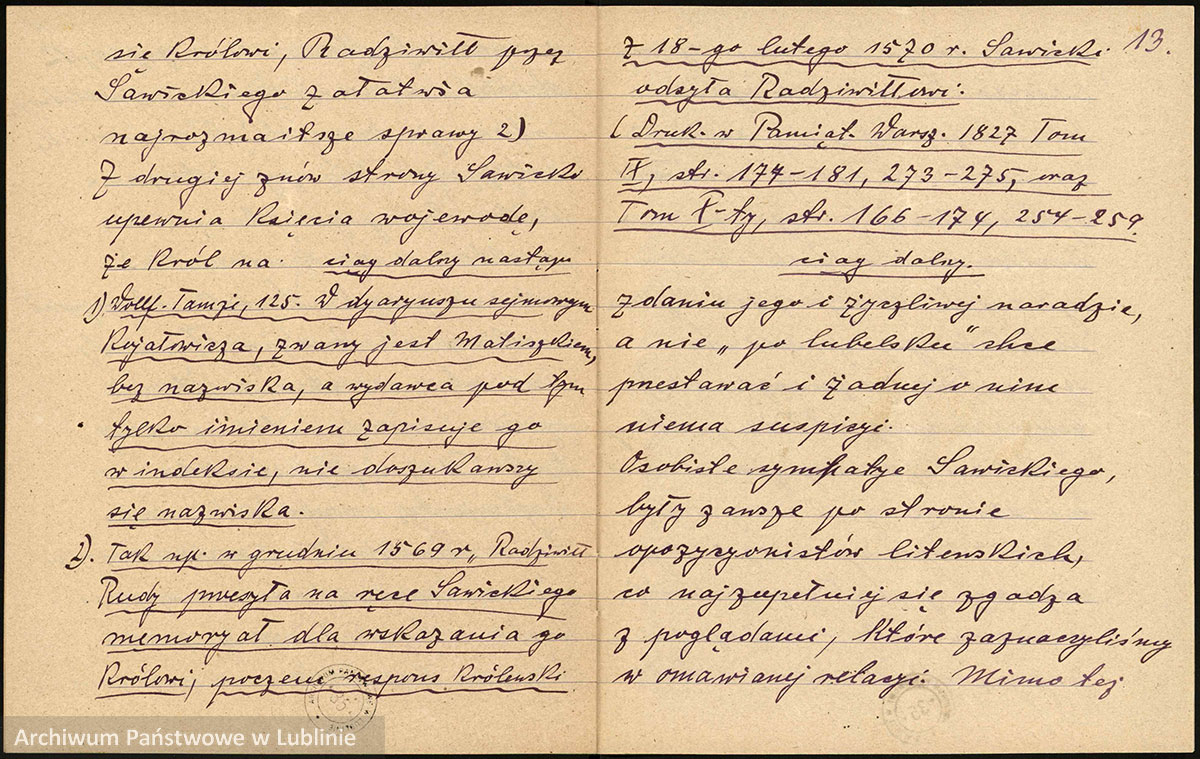 się Królowi, Radziwiłł przez
Sawickiego załatwia
najrozmaitsze sprawy 2)
Z drugiej znów strony Sawicki
upewnia Księcia wojewodę,
że Król na ciąg dalszy nastąpi
1) Wolff. Tamże, 125. W dyaryuszu sejmowym
Kojałowicza, zwany jest Matiszkiem,
bez nazwiska, a wydawca pod tym
tylko imieniem zapisuje go
w indeksie, nie doszukawszy
się nazwiska.
2). Tak np. w grudniu 1569 r., Radziwiłł
Rudy przesyła na ręce Sawickiego
memoryał dla wskazania go
Królowi, poczem respons Królewski
13.
Z 18-go lutego 1570 r. Sawicki
odsyła Radziwiłłowi.
(Druk. w Pamiąt. Warsz. 1827 Tom
IX, str. 174-181, 273-275, oraz
Tom X-ty, str. 166-174, 254-259.
ciąg dalszy.
zdaniu jego i życzliwej naradzie,
a nie „po lubelsku" chce
przestawać i żadnej o nim
niema suspicyi.
Osobiste sympatye Sawickiego,
były zawsze po stronie
opozycyonistów litewskich,
co najzupełniej się zgadza
z poglądami, które zaznaczyliśmy
w omawianej relacyi. Mimo tej
Archiwum Państwowe w Lublinie